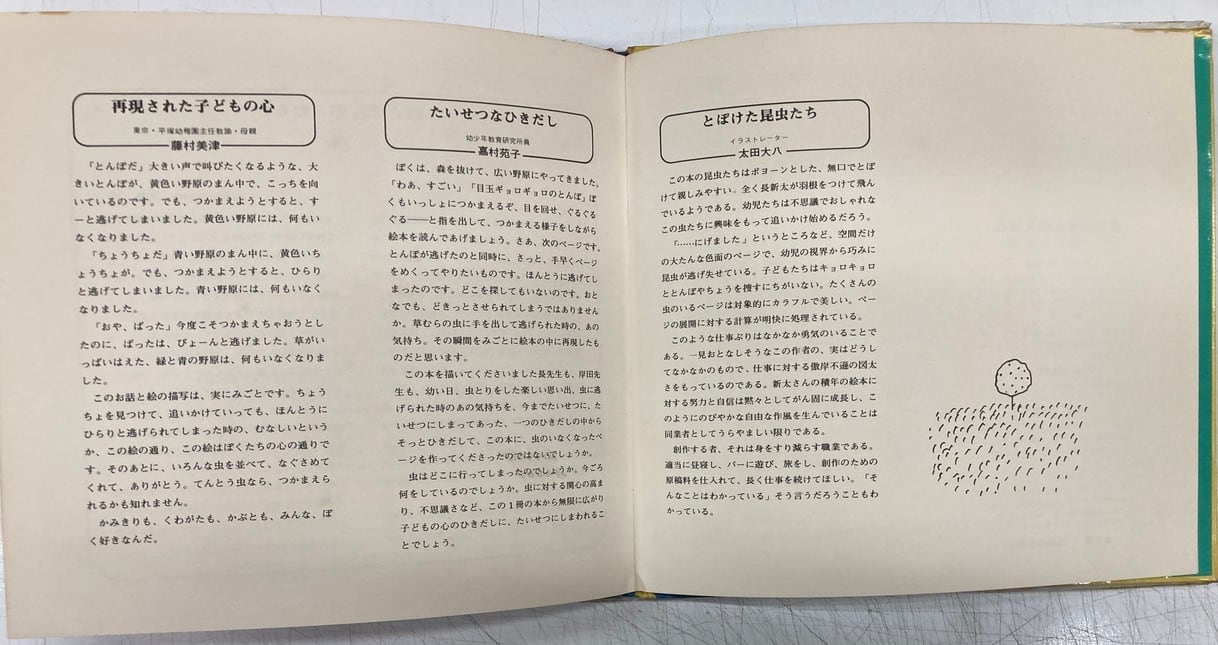 再現された子どもの心
東京・平塚幼稚園主任教諭・母親
藤村美津
「とんぼだ」大きい声で叫びたくなるような、大
きいとんぼが、黄色い野原のまん中で、こっちを向
いているのです。でも、つかまえようとすると、す
ーと逃げてしまいました。黄色い野原には、何もい
なくなりました。
「ちょうちょだ」青い野原のまん中に、黄色いち
ょうちょが。でも、つかまえようとすると、ひらり
と逃げてしまいました。青い野原には、何もいなく
なりました。
「おや、ばった」今度こそつかまえちゃおうとし
たのに、ばったは、ぴょーんと逃げました。草がい
っぱいはえた、緑と青の野原は、何もいなくなりま
した。
このお話と絵の描写は、実にみごとです。ちょう
ちょを見つけて、追いかけていっても、ほんとうに
ひらりと逃げられてしまった時の、むなしいという
か、この絵の通り、この絵はぼくたちの心の通りで
す。そのあとに、いろんな虫を並べて、なぐさめて
くれて、ありがとう。てんとう虫なら、つかまえら
れるかも知れません。
かみきりも、くわがたも、かぶとも、みんな、ぼ
く好きなんだ。
たいせつなひきだし
幼少年教育研究所員
嘉村苑子
ぼくは、森を抜けて、広い野原にやってきました。
「わあ、すごい」「目玉ギョロギョロのとんぼ」ぼ
くもいっしょにつかまえるぞ、目を回せ、ぐるぐる
ぐる――と指を出して、つかまえる様子をしながら
絵本を読んであげましょう。さあ、次のページです。
とんぼが逃げたのと同時に、さっと、手早くページ
をめくってやりたいものです。ほんとうに逃げてし
まったのです。どこを探してもいないのです。おと
なでも、どきっとさせられてしまうではありません
か。草むらの虫に手を出して逃げられた時の、あの
気持ち。その瞬間をみごとに絵本の中に再現したも
のだと思います。
この本を描いてくださいました長先生も、岸田先
生も、幼い日、虫とりをした楽しい思い出、虫に逃
げられた時のあの気持ちを、今までたいせつに、た
いせつにしまってあった、一つのひきだしの中から
そっとひきだして、この本に、虫のいなくなったペ
ージを作ってくださったのではないでしょうか。
虫はどこに行ってしまったのでしょうか。今ごろ
何をしているのでしょうか。虫に対する関心の高ま
り、不思議さなど、この1冊の本から無限に広がり
子どもの心のひきだしに、たいせつにしまわれるこ
とでしょう。
とぼけた昆虫たち
イラストレーター
太田大八
この本の昆虫たちはボヨーンとした、無口でとぼ
けて親しみやすい。全く長新太が羽根をつけて飛ん
でいるようである。幼児たちは不思議でおしゃれな
この虫たちに興味をもって追いかけ始めるだろう。
「……にげました」というところなど、空間だけ
の大たんな色面のページで、幼児の視界から巧みに
昆虫が逃げ失せている。子どもたちはキョロキョロ
ととんぼやちょうを捜すにちがいない。たくさんの
虫のいるページは対象的にカラフルで美しい。ペー
ジの展開に対する計算が明快に処理されている。
このような仕事ぶりはなかなか勇気のいることで
ある。一見おとなしそうなこの作者の、実はどうし
てなかなかのもので、仕事に対する傲岸不遜の図太
さをもっているのである。新太さんの積年の絵本に
対する努力と自信は黙々としてがん固に成長し、こ
のようにのびやかな自由な作風を生んでいることは
同業者としてうらやましい限りである。
創作する者、それは身をすり減らす職業である。
適当に昼寝し、バーに遊び、旅をし、創作のための
原稿料を仕入れて、長く仕事を続けてほしい。「そ
んなことはわかっている」そう言うだろうこともわ
かっている。